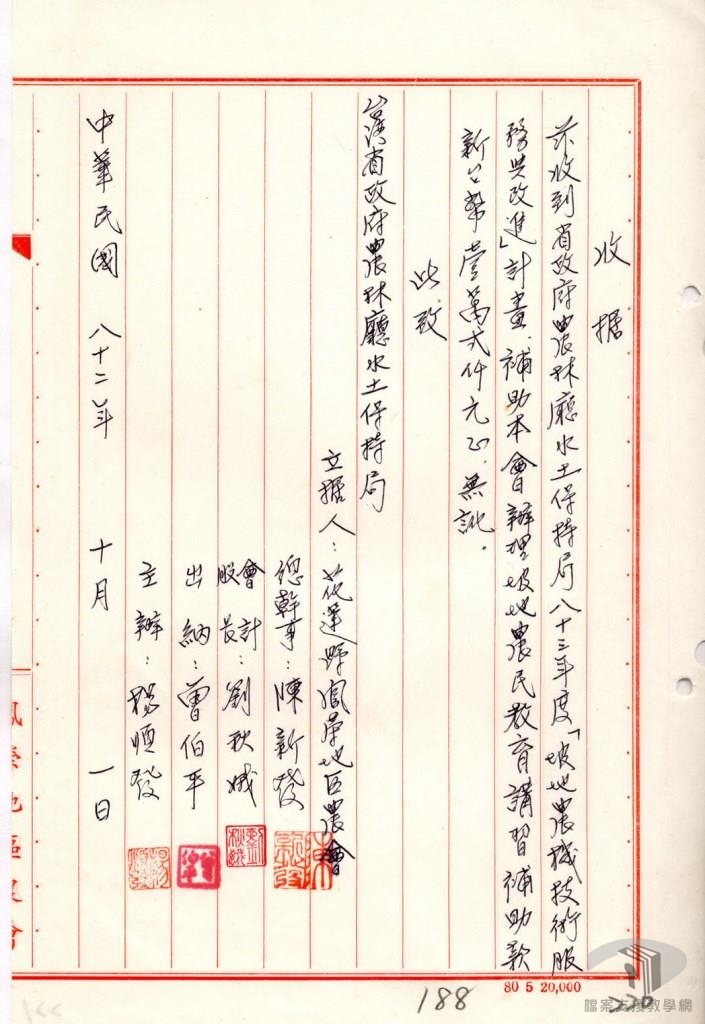 收据
茲收到省政府農林廳水土保持局八十三年度「坡地農機技術服
務與改進」計畫.補助本會辦理坡地農民教育講習補助款
新台幣壹萬弍仟元正.無訛.
此致
台灣省政府農林廳水土保持局
立據人：花蓮縣鳳榮地區農會
總幹事：陳新發
會計股長：劉秋娥
出納：曾伯平
主辦：楊順發
中華民國 八十二年 十月 一日
鳳榮地區農會
80 5 20,000
188
檔案支援教學網